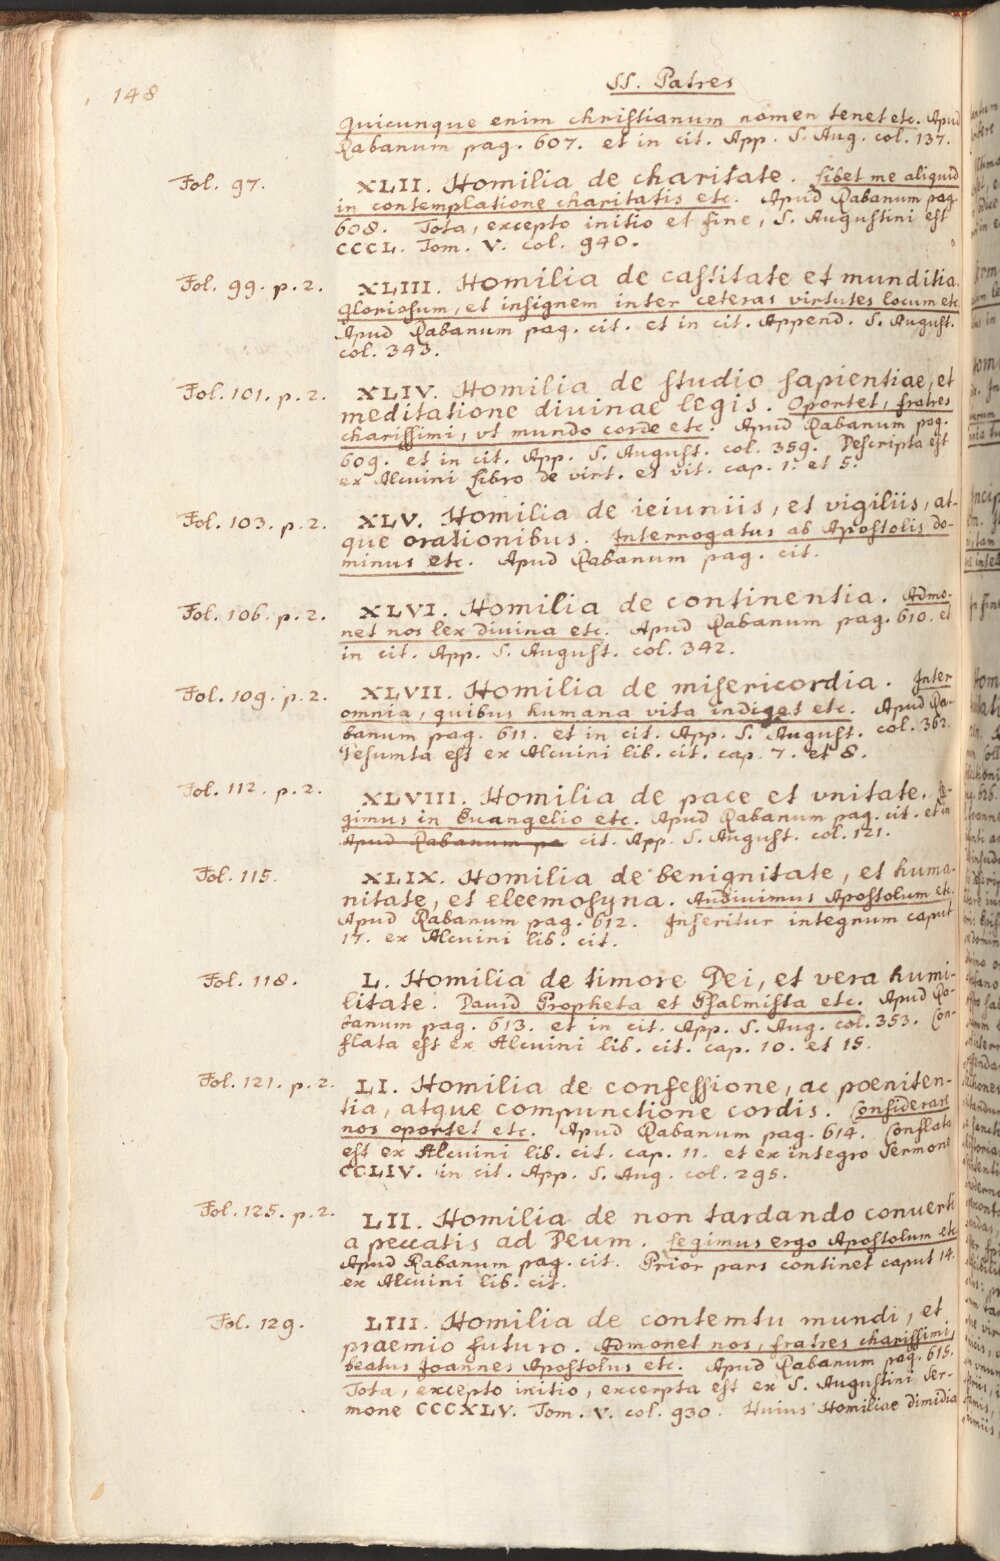 148
SS. Patres
Quicunque enim christianum nomen tenet etc. Apud
Rabanum pag. 607. et in cit. App. S. Aug. col. 137.
Fol. 97. XLII. Homilia de charitate. Libet me aliquid
in contemplatione charitatis etc. Apud Rabanum pag.
608. Tota, excepto initio et fine, S. Augustini est
CCCL. Tom. V. col. 940.
Fol. 99. p. 2. XLIII. Homilia de castitate et munditia.
Gloriosum, et insignem inter ceteras virtutes locum etc
Apud Rabanum pag. cit. et in cit. Append. S. August.
col. 343.
Fol. 101. p. 2. XLIV. Homilia de studio sapientiae, et
meditatione divinae legis. Oportet, fratres
charissimi, vt mundo corde etc. Apud Rabanum pag.
609. et in cit. App. S. August. col. 359. Descripta est
ex Alcuini Libro de virt. et vit. cap. 1. et 5.
Fol. 103. p. 2. XLV. Homilia de ieiuniis, et vigiliis, at-
que orationibus. Interrogatus ab Apostolis Do-
minus etc. Apud Rabanum pag. cit.
Fol. 106. p. 2. XLVI. Homilia de continentia. Admo-
net nos lex divina etc. Apud Rabanum pag. 610. et
in cit. App. S. August. col. 342.
Fol. 109. p. 2. XLVII. Homilia de misericordia. Inter
omnia, quibus humana vita indiget etc. Apud Ra-
banum pag. 611. et in cit. App. S. August. col. 362.
Desumta est ex Alcuini lib. cit. cap. 7. et 8.
Fol. 112. p. 2. XLVIII. Homilia de pace et vnitate. Le-
gimus in Euangelio etc. Apud Rabanum pag. cit. et in
Apud Rabanum pa cit. App. S. August. col. 121.
Fol. 115. XLIX. Homilia de benignitate, et huma-
nitate, et eleemosyna. Audivimus Apostolum etc.
Apud Rabanum pag. 612. Inseritur integnum caput
17. ex Alcuini lib. cit.
Fol. 118. L. Homilia de timore Dei, et vera humi-
litate. David Propheta et Psalmista etc. Apud Ra-
banum pag. 613. et in cit. App. S. Aug. col. 353. Con-
flata est ex Alcuini lib. cit. cap. 10. et 15.
Fol. 121. p. 2. LI. Homilia de confessione, ac poeniten-
tia, atque compunctione cordis. Considerare
nos oportet etc. Apud Rabanum pag. 614. Conflata
est ex Alcuini lib. cit. cap. 11. et ex integro Sermone
CCLIV. in cit. App. S. Aug. col. 295.
Fol. 125. p. 2. LII. Homilia de non tardando converti
a peccatis ad Deum. Legimus ergo Apostolum etc
Apud Rabanum pag. cit. Prior pars continet caput 14.
ex Alcuini lib. cit.
Fol. 129. LIII. Homilia de contemtu mundi, et
praemio futuro. Admonet nos, fratres charissimi,
beatus Joannes Apostolus etc. Apud Rabanum pag. 615.
Tota, excepto initio, excerpta est ex S. Augustini Ser-
mone CCCXLV. Tom. V. col. 930. Huius Homiliae dimidia